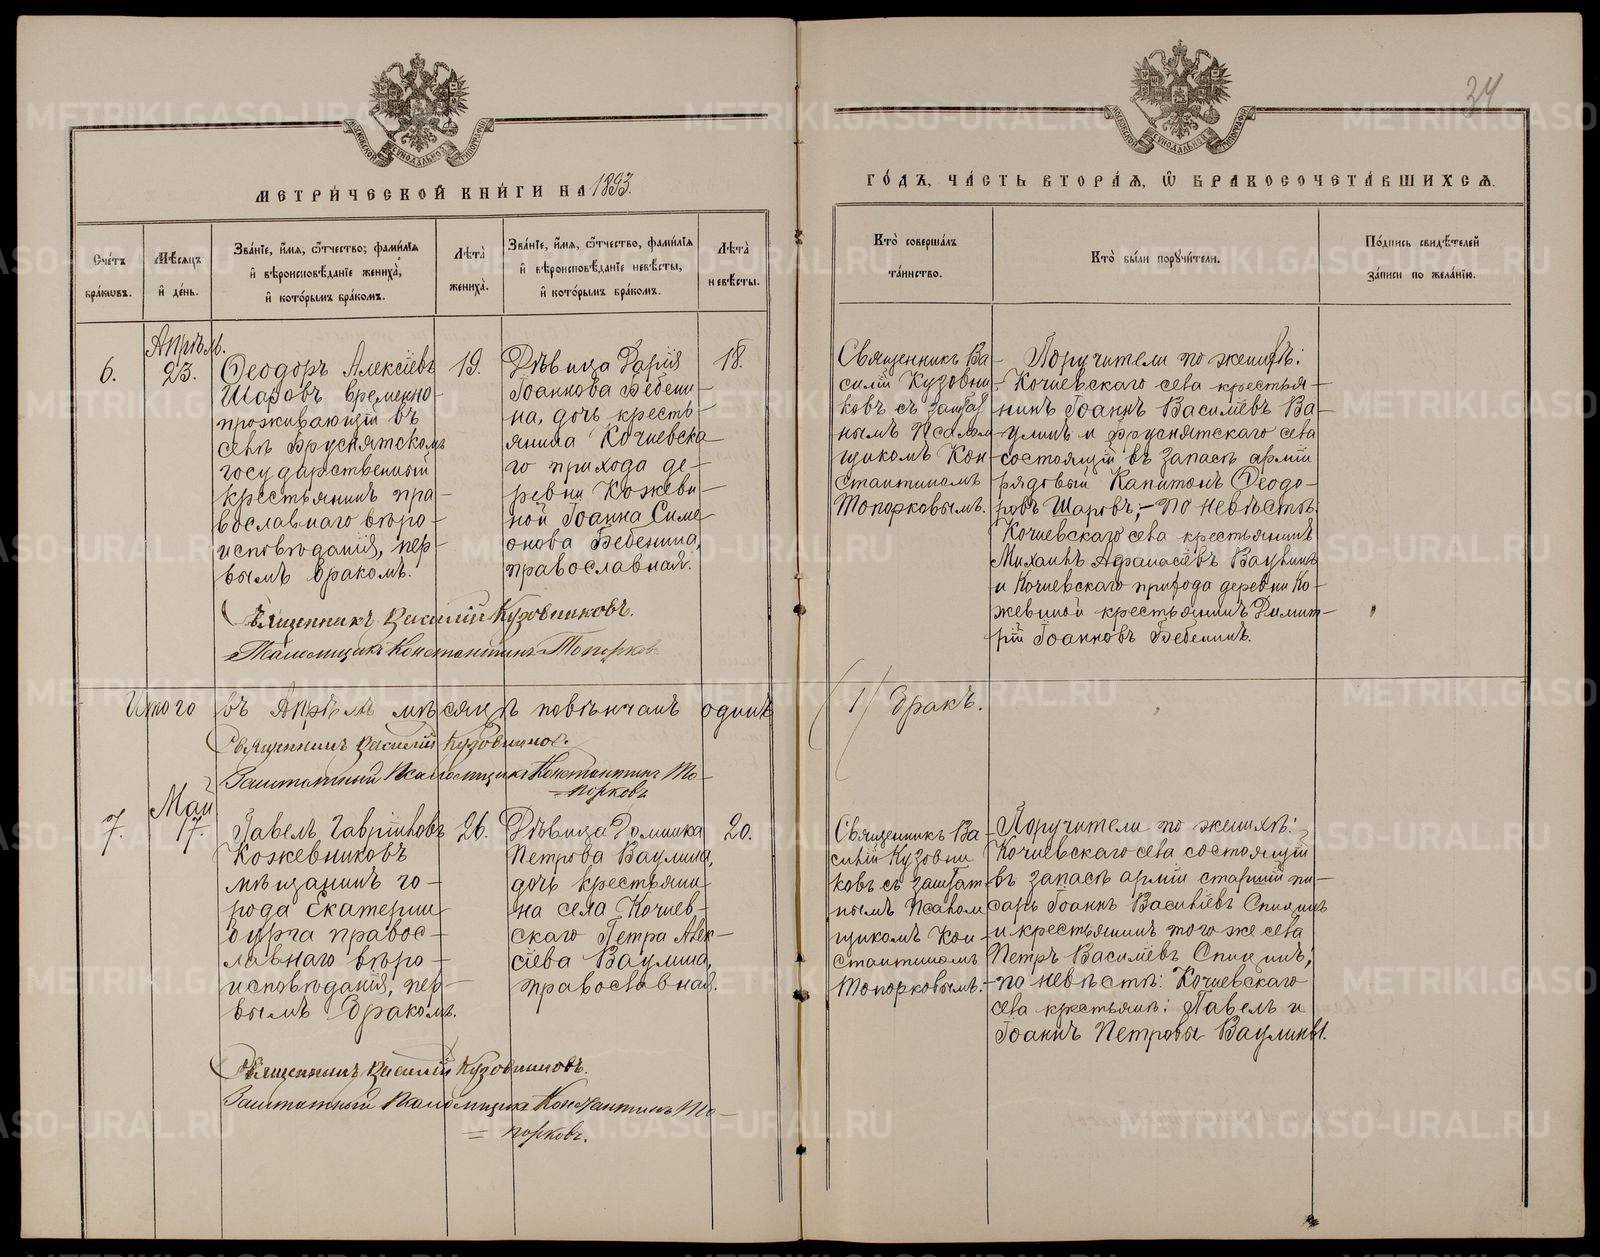 34
МЕТРИЧЕСКОЙ КНИГИ НА 1893.
ГОДЪ, ЧАСТЬ ВТОРАЯ, Ѡ БРАКОСОЧЕТАВШИХСЯ.
Счетъ браковъ.
Мѣсяцъ и день.
Званіе, имя, ѿчество, фамилія и вѣроисповѣданіе жениха, и которымъ бракомъ.
Лѣта жениха.
Званіе, имя, ѿчество, фамилія и вѣроисповѣданіе невѣсты, и которымъ бракомъ.
Лѣта невѣсты.
Кто совершалъ таинство.
Кто были поручители.
Подпись свидѣтелей записи по желанію.
6.
Апрѣль.
23.
Ѳеодоръ Алексіевъ
Шаровъ временно-
проживающій въ
селѣ Бруснятскомъ
государственный
крестьянинъ пра-
вославнаго вѣро-
исповѣданія, пер-
вымъ бракомъ.
19.
Дѣвица Дарія
Іоаннова Бебени-
на, дочь кресть-
янина Кочневска-
го прихода де-
ревни Кожеви-
ной Іоанна Симе-
онова Бебенина,
православная.
18.
Священникъ Ва-
силій Кузовни-
ковъ съ заштат-
нымъ Псалом-
щикомъ Кон-
стантиномъ
Топорковымъ.
Поручители по женихѣ:
Кочневскаго села крестья-
нинъ Іоаннъ Василіевъ Ва-
улинъ и Бруснятскаго села
состоящій въ запасѣ арміи
рядовый Капитонъ Ѳеодо-
ровъ Шаровъ; - по невѣстѣ:
Кочневскаго села крестьянинъ
Михаилъ Аѳанасіевъ Ваулинъ
и Кочневскаго прихода деревни Ко-
жевиной крестьянинъ Димит-
рій Іоанновъ Бебенинъ.
Священникъ Василій Кузовниковъ.
Псаломщикъ Константинъ Топорков
Итого въ Апрѣлѣ мѣсяцѣ повѣнчанъ одинъ
(1) бракъ.
Священникъ Василій Кузовников.
Заштатный Псаломщикъ Константинъ То-
порковъ
7.
Май
17.
Павелъ Гавріиловъ
Кожевниковъ
мѣщанинъ го-
рода Екатерин-
бурга правос-
лавнаго вѣро-
исповѣданія, пер-
вымъ бракомъ.
26.
Дѣвица Домника
Петрова Ваулина,
дочь крестьяни-
на села Кочнев-
скаго Петра Алек-
сіева Ваулина,
православная.
20.
Священникъ Ва-
силій Кузовни-
ковъ съ заштат-
нымъ Псалом-
щикомъ Кон-
стантиномъ
Топорковымъ.
Поручители по женихѣ:
Кочневскаго села состоящій
въ запасѣ арміи старшій пи-
сарь Іоаннъ Василіевъ Спицинъ
и крестьянинъ того же села
Петръ Василіевъ Спицинъ;
по невѣстѣ: Кочневскаго
села крестьяне: Павелъ и
Іоаннъ Петровы Ваулины.
Священникъ Василій Кузовниковъ.
Заштатный Псаломщикъ Константинъ То-
порковъ.
METRIKI.GASO-URAL.RU